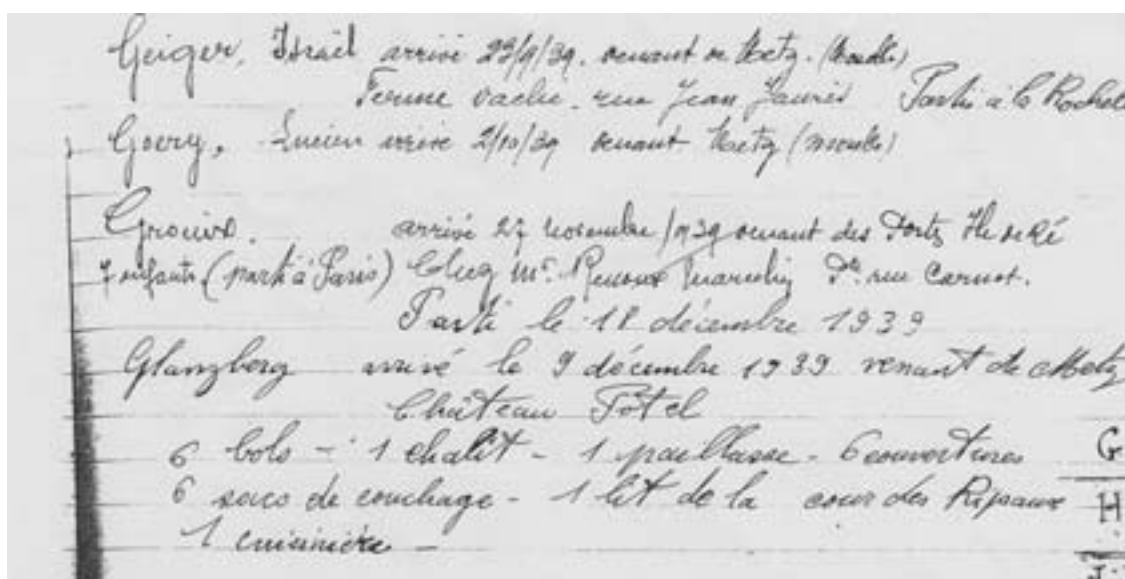 Geiger, Israël arrivé 23/9/39. venant de Metz. (Moselle)
Ferme Vache, rue Jean Jaurès Parti à la Rochel
Goery, Lucien arrivé 2/10/39 venant Metz (Moselle)
arrivé 27 novembre 1939 venant des Portz Ile de Ré
7 enfants (parti à Paris) Chez Mr. Renoux Marcelin rue Carnot.
Parti le 18 décembre 1939
Glanzberg arrivé le 9 décembre 1939 venant de Metz
Château Potel
6 bols - 1 chalit - 1 paillasse - 6 couvertures
6 sacs de couchage - 1 lit de la cour des Ripaux
1 cuisinière -
G
H